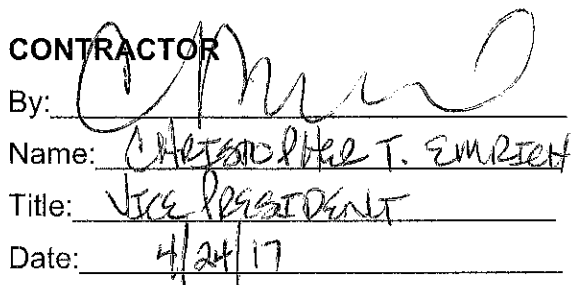 CONTRACTOR
By:
Name: CHRISTOPHER T. EMRICH
Title: VICE PRESIDENT
Date: 4/24/17